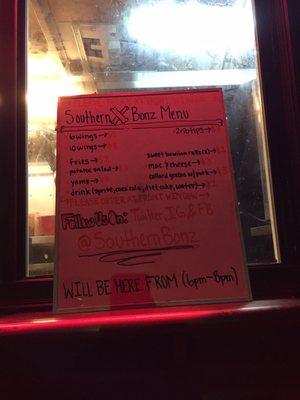 Southern X Bonz Menu
6 wings →
10 wings →
2 rib tips →
fries →
potato salad →
yams →
sweet hawaiian rolls(2) →
mac & cheese →
collard greens w/ pork →
drink (sprite, coca cola, diet coke, water) →
PLEASE ORDER AT FRONT WINDOW
Follow Us On: Twitter, IG & FB
@SouthernBonz
WILL BE HERE FROM (6pm-8pm)